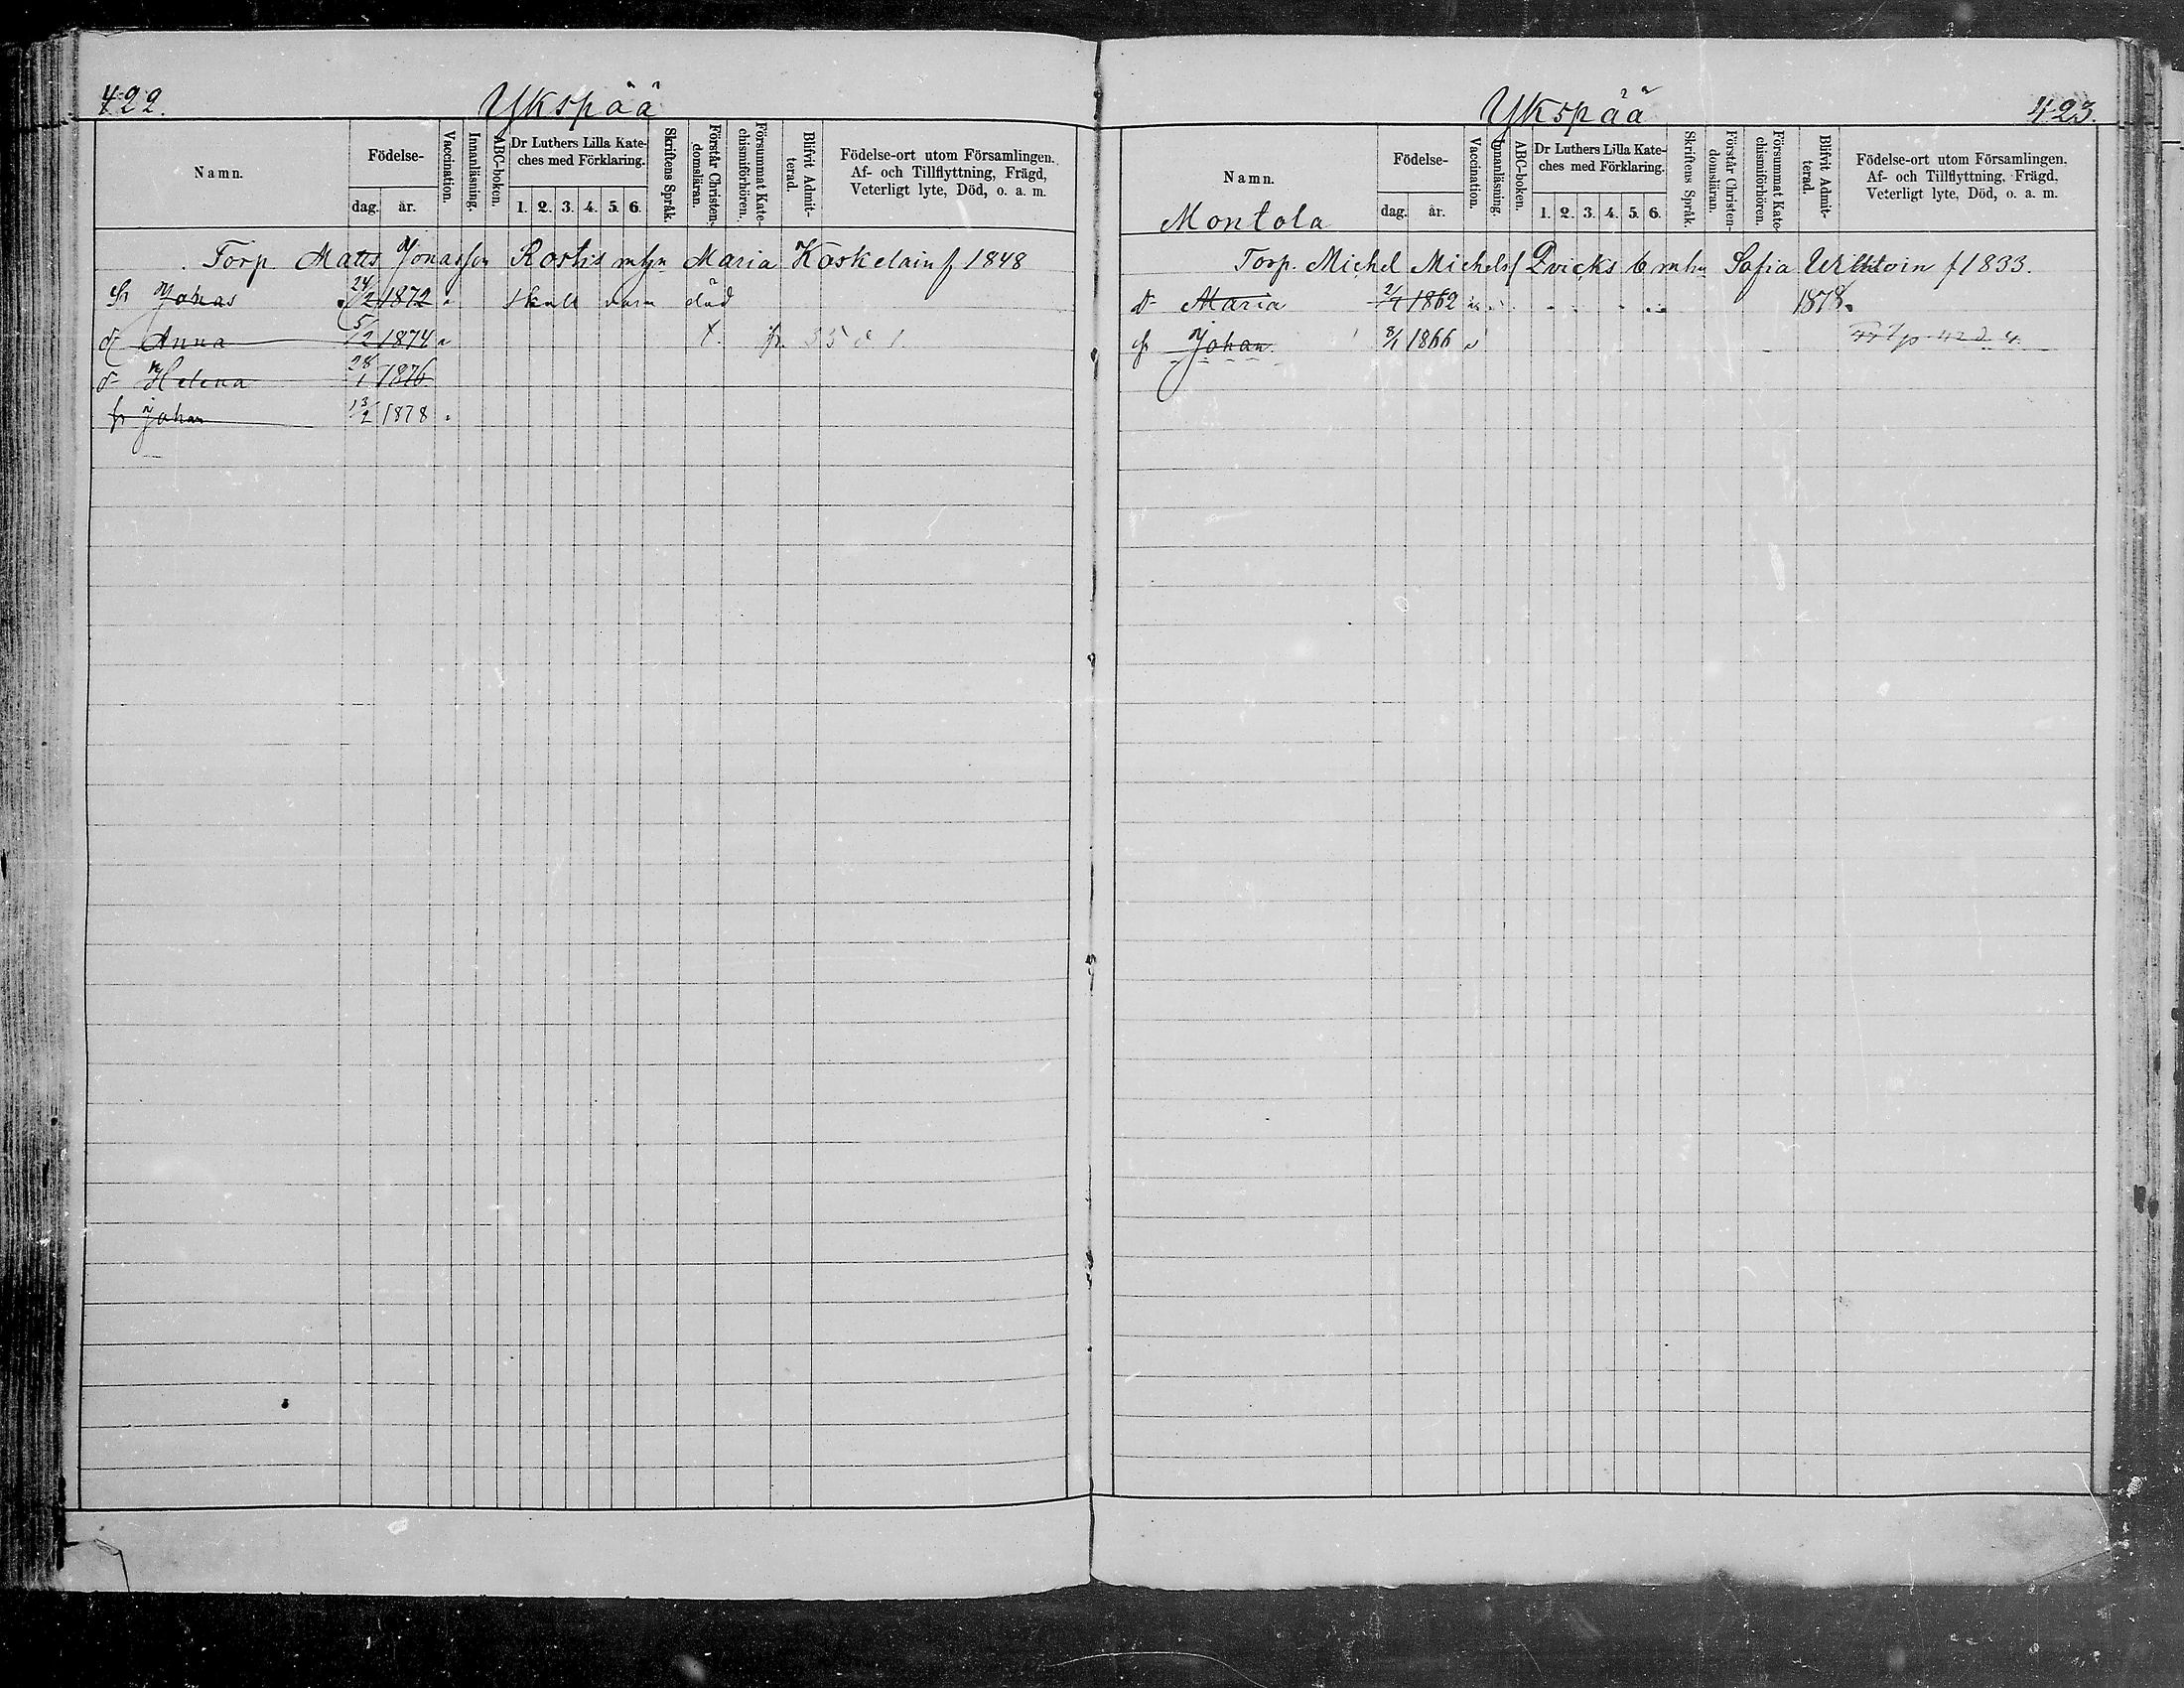 422.
Ykspää
Namn.
Födelse-
dag.
år.
Vaccination.
Innanläsning.
ABC-bokon.
Dr Luthers Lilla Kate-
ches med Förklaring.
1. 2. 3. 4. 5. 6.
Skriftens Språk.
Förstår Christen-
domsläran.
Försummat Kate-
chismiförhören.
Blifvit Admit-
terad.
Födelse-ort utom Församlingen.
Af- och Tillflyttning, Frägd,
Veterligt lyte, Död, o. a. m.
Torp. Matts Jonasson Rostis Maria Koskelain f 1848
Jonas 24/2 1872 skall vara död
Anna 5/2 1874
d Helena 28/1 1876
Johan 13/2 1878
Ykspää
423.
Namn.
Montola
Födelse-
dag.
år.
Vaccination.
Innanläsning.
ABC-boken.
Dr Luthers Lilla Kate-
ches med Förklaring.
1. 2. 3. 4. 5. 6.
Skriftens Språk.
Förstår Christen-
domsläran.
Försummat Kate-
chismiförhören.
Blifvit Admit-
terad.
Födelse-ort utom Församlingen.
Af- och Tillflyttning, Frägd,
Veterligt lyte, Död, o. a. m.
Torp. Michel Michelsf Qvicks Sofia f 1833.
d Maria 1862 1878
Johan 8/1 1866